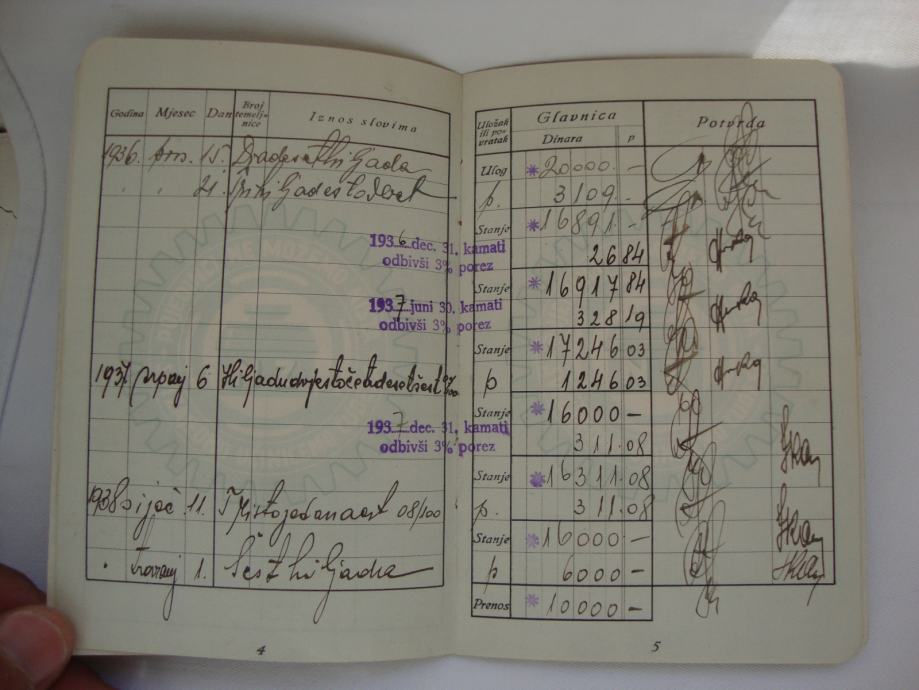 Godina Mjesec Dan Broj temeljnice Iznos slovima
1936. pros. 15. Dvadesethiljada
" " 21. Trihiljadestodevet
1936 dec. 31. kamati
odbivši 3% porez
1937 juni 30. kamati
odbivši 3% porez
1937. srpanj 6 Hiljadudvjestočetrdesetšest 03/100
1937 dec. 31. kamati
odbivši 3% porez
1938 siječ. 11. Tristojedanaest 08/100
" travanj 1. Šesthiljada
4
Uložak ili povratak Glavnica Potvrda
Dinara p
Ulog 20000 -
p. 3109 -
Stanje 16891 -
26 84
Stanje 16917 84
328 19
Stanje 17246 03
p 1246 03
Stanje 16000 -
311 08
Stanje 16311 08
p. 311 08
Stanje 16000 -
p 6000 -
Prenos 10000 -
5